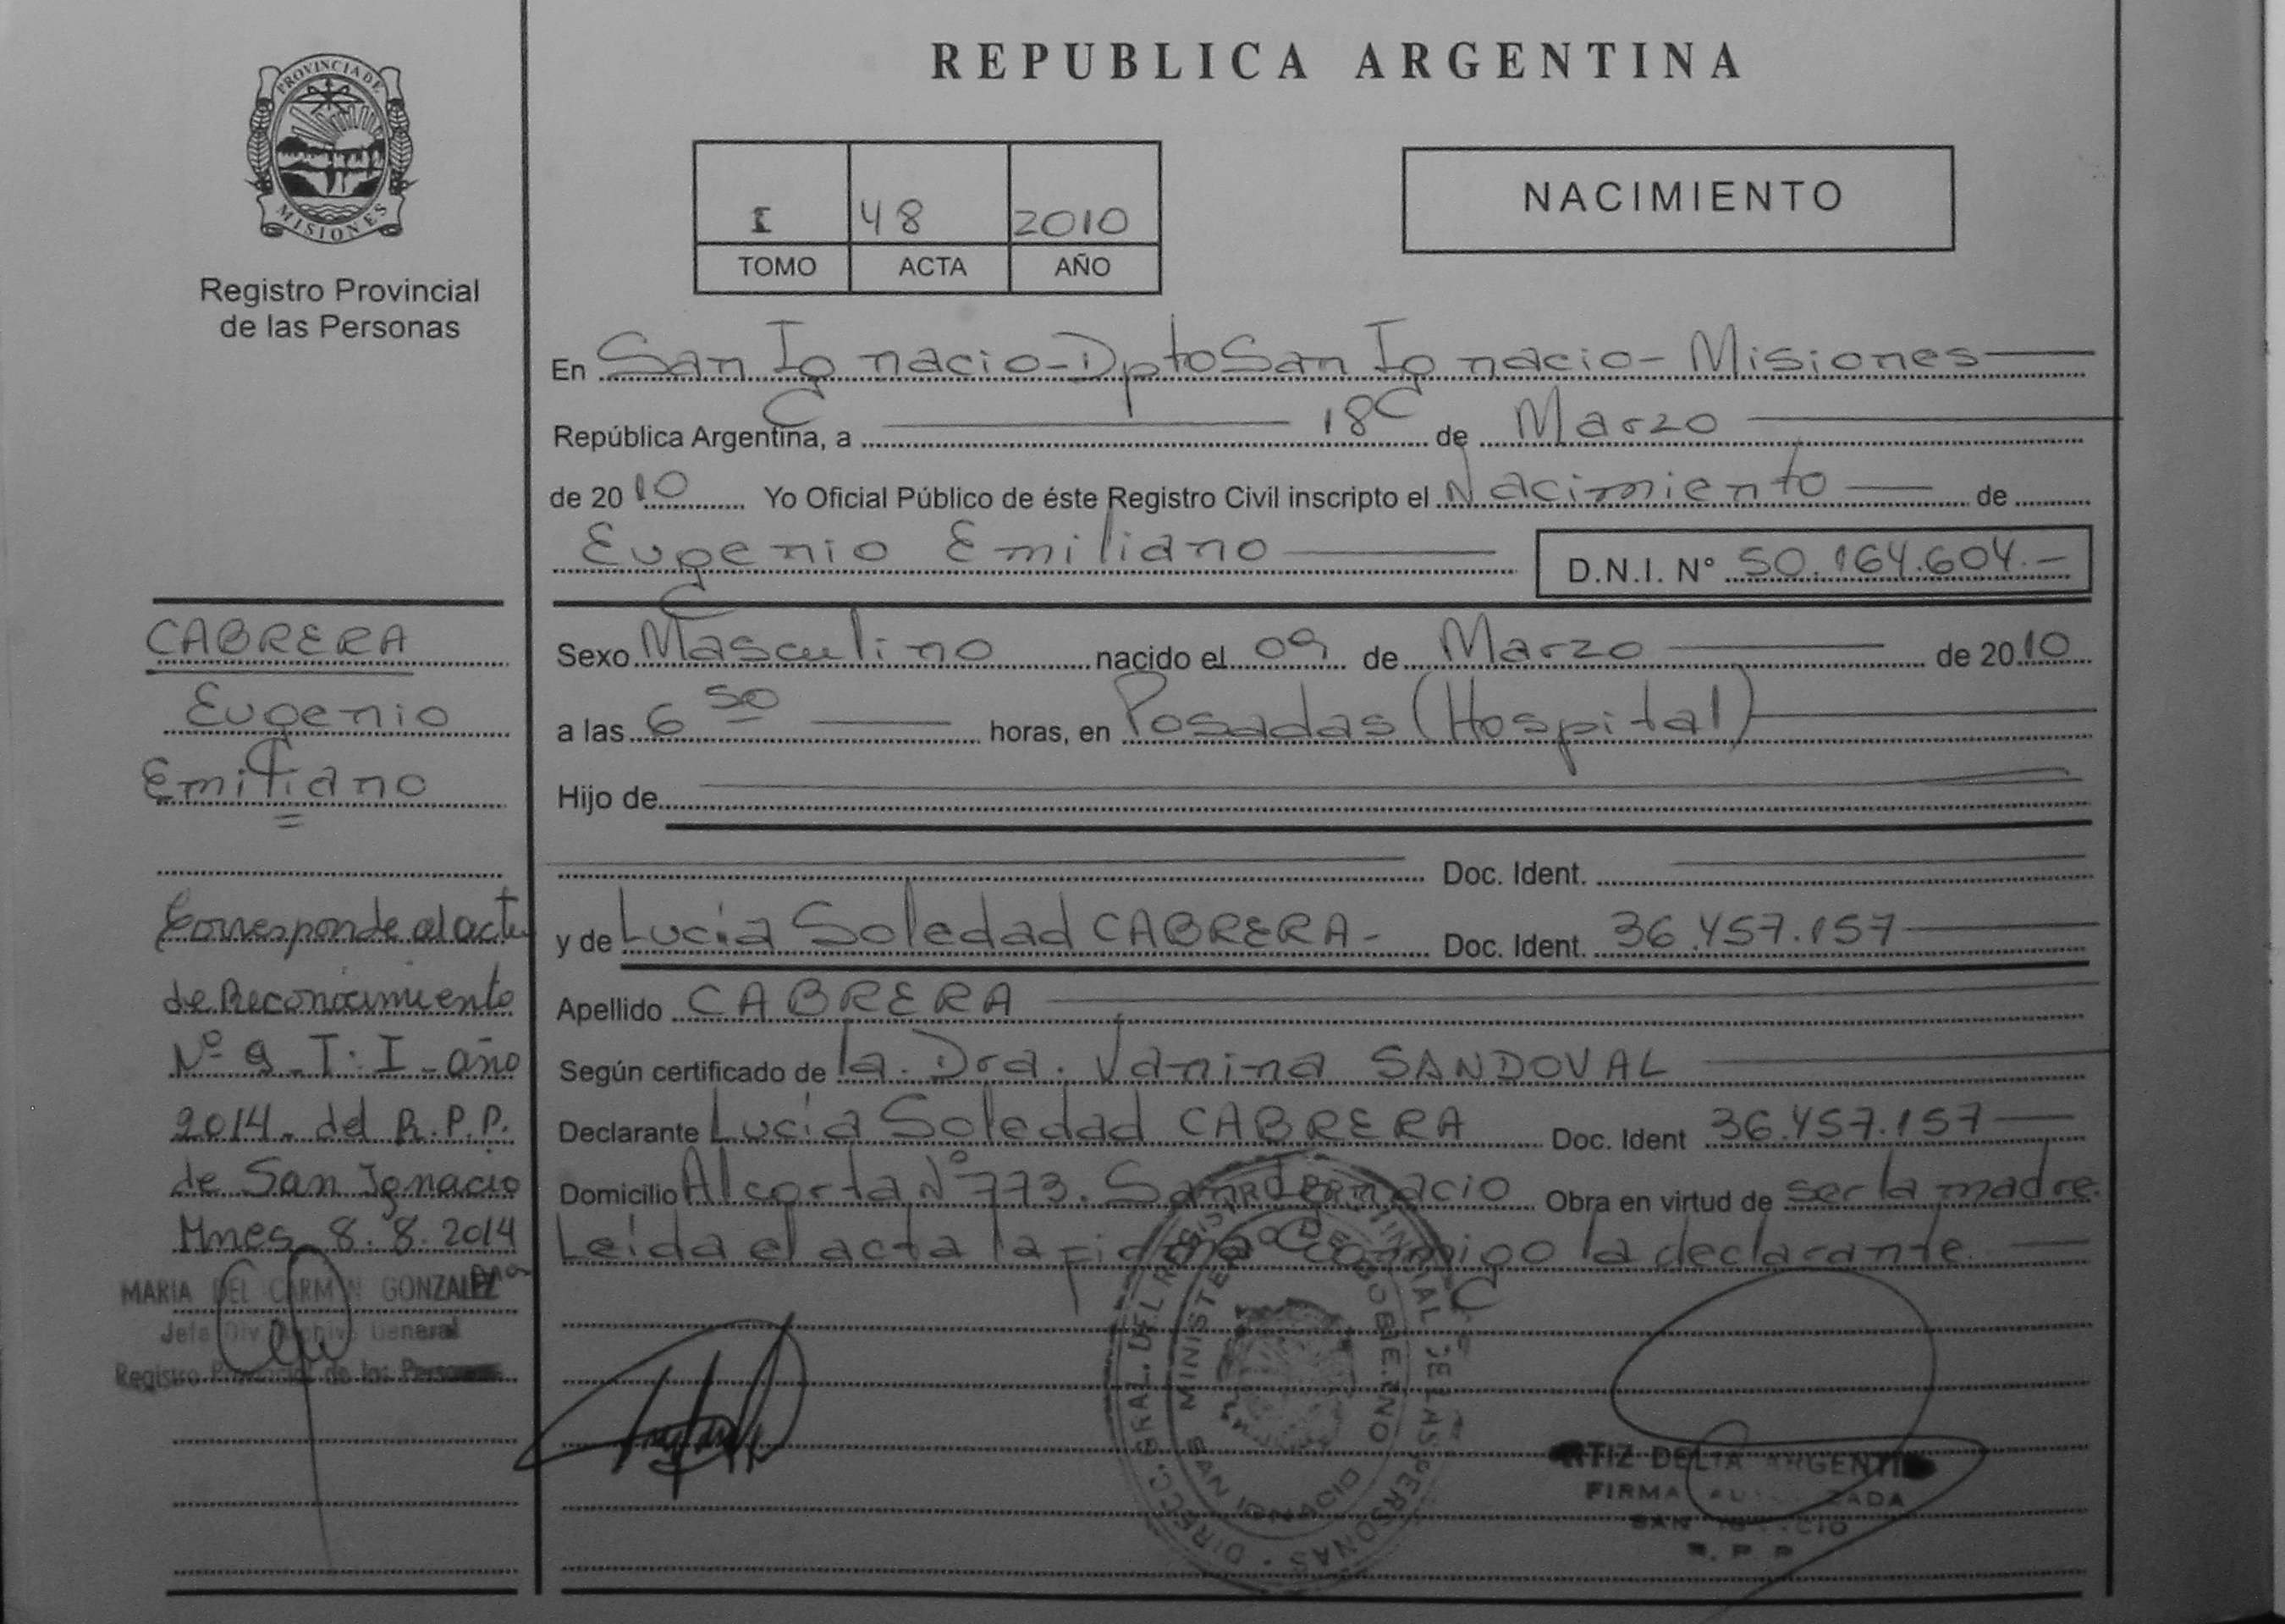 PROVINCIA DE
MISIONES
Registro Provincial
de las Personas
REPUBLICA ARGENTINA
I 48 2010
TOMO ACTA AÑO
NACIMIENTO
En San Ignacio-Dpto San Ignacio- Misiones
República Argentina, a 18 de Marzo
de 2010 Yo Oficial Público de éste Registro Civil inscripto el Nacimiento de
Eugenio Emiliano D.N.I. N° 50.164.604.-
Sexo Masculino nacido el 09 de Marzo de 2010
a las 6 50 horas, en Posadas (Hospital)
Hijo de
Doc. Ident.
y de Lucia Soledad CABRERA- Doc. Ident. 36.457.157
Apellido CABRERA
Según certificado de la. Dra. Vanina SANDOVAL
Declarante Lucia Soledad CABRERA Doc. Ident 36.457.157
Domicilio Alcorta N° 773. San Ignacio Obra en virtud de ser la madre.
Leída el acta la firma conmigo la declarante.
CABRERA
Eugenio
Emiliano
Corresponde al acta
de Reconocimiento
Nº 9 - T: I - año
2014 - del R.P.P.
de San Ignacio
Mnes, 8.8.2014
MARIA DEL CARMEN GONZALEZ
Jefa Div Archivo General
Registro Provincial de las Personas
DIRECC. GRAL. DEL REGISTRO PROVINCIAL DE LAS PERSONAS
MINISTERIO DE GOBIERNO
SAN IGNACIO
DELIA ARGENTINA
FIRMA AUTORIZADA
SAN IGNACIO
R. P. P.